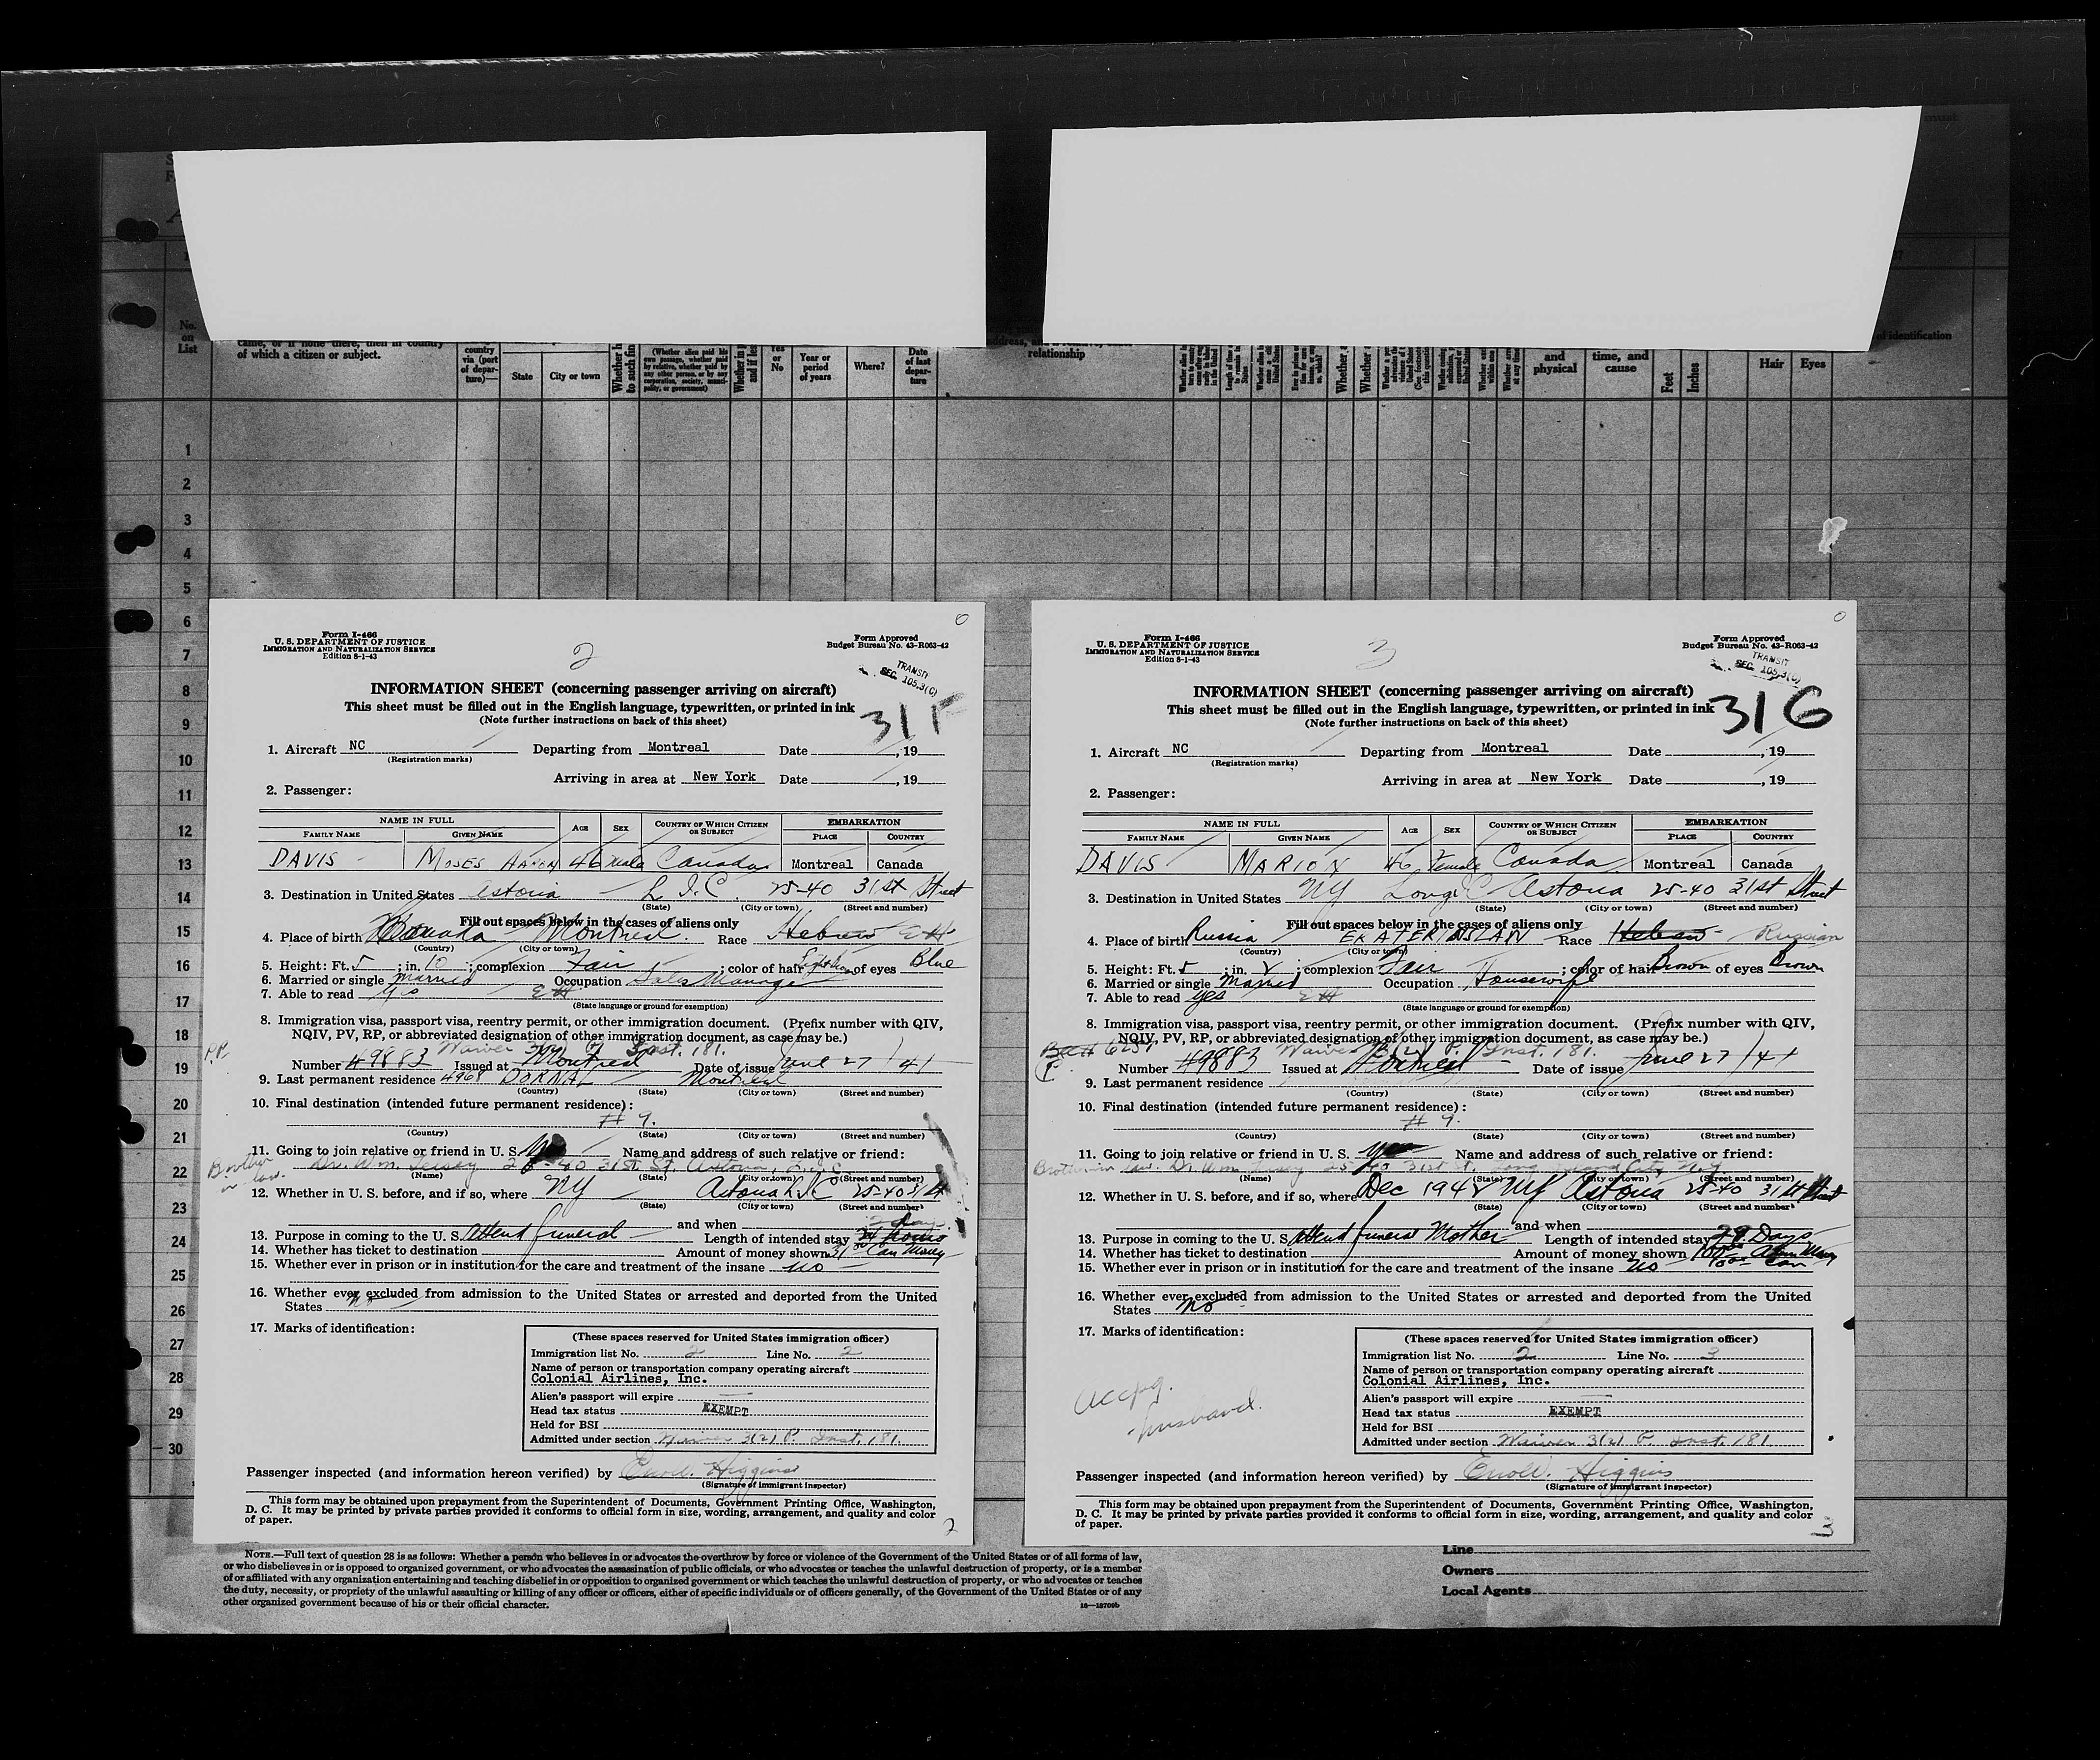 No.
on
List
of which a citizen or subject.
country
via (port
of depar-
ture)—
State
City or town
(Whether alien paid his
own passage, whether paid
by relative, whether paid by
any other person, or by any
corporation, society, munici-
pality, or government)
Yes
or
No
Year or
period
of years
Where?
Date
of last
depar-
ture
relationship
and
physical
time, and
cause
Feet
Inches
Hair
Eyes
of identification
1
2
3
4
5
6
7
8
9
10
11
12
13
14
15
16
17
18
19
20
21
22
23
24
25
26
27
28
29
30
Form I-466
U. S. DEPARTMENT OF JUSTICE
IMMIGRATION AND NATURALIZATION SERVICE
Edition 8-1-43
2
Form Approved
Budget Bureau No. 43-R063-42
TRANSIT
SEC. 105.3(C)
INFORMATION SHEET (concerning passenger arriving on aircraft)
This sheet must be filled out in the English language, typewritten, or printed in ink
(Note further instructions on back of this sheet)
31F
1. Aircraft NC Departing from Montreal Date , 19
(Registration marks)
Arriving in area at New York Date , 19
2. Passenger:
NAME IN FULL AGE SEX COUNTRY OF WHICH CITIZEN OR SUBJECT EMBARKATION
FAMILY NAME GIVEN NAME PLACE COUNTRY
DAVIS MOSES AARON 46 male Canada Montreal Canada
3. Destination in United States Astoria L.I.C. 25-40 31st Street
(State) (City or town) (Street and number)
Fill out spaces below in the cases of aliens only
4. Place of birth Canada Montreal. Race Hebrew EH
(Country) (City or town)
5. Height: Ft. 5 ; in. 10 ; complexion Fair ; color of hair of eyes Blue
6. Married or single Married Occupation Sales Manager
7. Able to read yes EH
(State language or ground for exemption)
8. Immigration visa, passport visa, reentry permit, or other immigration document. (Prefix number with QIV,
NQIV, PV, RP, or abbreviated designation of other immigration document, as case may be.)
P.P. Waiver 3(2) P. Inst. 181.
Number 49883 Issued at Montreal Date of issue June 27/41
9. Last permanent residence 4968 DORNAL Montreal
(Country) (State) (City or town) (Street and number)
10. Final destination (intended future permanent residence):
# 9.
(Country) (State) (City or town) (Street and number)
11. Going to join relative or friend in U. S. Name and address of such relative or friend:
Brother in law. Dr. Wm. 25-40 31st St. Astoria, L.I.C.
(Name) (State) (City or town) (Street and number)
12. Whether in U. S. before, and if so, where NY Astoria L.I.C 25-40 31 St
(State) (City or town) (Street and number)
and when
13. Purpose in coming to the U. S. Attend funeral Length of intended stay
14. Whether has ticket to destination Amount of money shown 31 Can Money
15. Whether ever in prison or in institution for the care and treatment of the insane no
16. Whether ever excluded from admission to the United States or arrested and deported from the United
States no
17. Marks of identification:
(These spaces reserved for United States immigration officer)
Immigration list No. 2 Line No. 2
Name of person or transportation company operating aircraft
Colonial Airlines, Inc.
Alien's passport will expire
Head tax status EXEMPT
Held for BSI
Admitted under section Waiver 3(2) P. Inst. 181.
Passenger inspected (and information hereon verified) by Higgins
(Signature of immigrant inspector)
This form may be obtained upon prepayment from the Superintendent of Documents, Government Printing Office, Washington,
D. C. It may be printed by private parties provided it conforms to official form in size, wording, arrangement, and quality and color
of paper.
2
Form I-466
U. S. DEPARTMENT OF JUSTICE
IMMIGRATION AND NATURALIZATION SERVICE
Edition 8-1-43
3
Form Approved
Budget Bureau No. 43-R063-42
TRANSIT
SEC. 105.3(C)
INFORMATION SHEET (concerning passenger arriving on aircraft)
This sheet must be filled out in the English language, typewritten, or printed in ink
(Note further instructions on back of this sheet)
31G
1. Aircraft NC Departing from Montreal Date , 19
(Registration marks)
Arriving in area at New York Date , 19
2. Passenger:
NAME IN FULL AGE SEX COUNTRY OF WHICH CITIZEN OR SUBJECT EMBARKATION
FAMILY NAME GIVEN NAME PLACE COUNTRY
DAVIS MARION 46 Female Canada Montreal Canada
3. Destination in United States NY Long I C Astoria 25-40 31st Street
(State) (City or town) (Street and number)
Fill out spaces below in the cases of aliens only
4. Place of birth Russia EKATERINSLAW Race Hebrew Russian
(Country) (City or town)
5. Height: Ft. 5 ; in. 2 ; complexion Fair ; color of hair Brown of eyes Brown
6. Married or single Married Occupation Housewife
7. Able to read yes EH
(State language or ground for exemption)
8. Immigration visa, passport visa, reentry permit, or other immigration document. (Prefix number with QIV,
NQIV, PV, RP, or abbreviated designation of other immigration document, as case may be.)
Waiver 3(2) P. Inst. 181.
Number 49883 Issued at Montreal Date of issue June 27/41
9. Last permanent residence
(Country) (State) (City or town) (Street and number)
10. Final destination (intended future permanent residence):
# 9.
(Country) (State) (City or town) (Street and number)
11. Going to join relative or friend in U. S. yes Name and address of such relative or friend:
Brother in law. Dr. Wm. 25-40 31st St. Long Island City N.Y.
(Name) (State) (City or town) (Street and number)
12. Whether in U. S. before, and if so, where Dec 1942 NY Astoria 25-40 31 St Street
(State) (City or town) (Street and number)
and when
13. Purpose in coming to the U. S. Attend funeral Mother Length of intended stay 29 Days
14. Whether has ticket to destination Amount of money shown
15. Whether ever in prison or in institution for the care and treatment of the insane no
16. Whether ever excluded from admission to the United States or arrested and deported from the United
States no
17. Marks of identification:
Accpg.
husband.
(These spaces reserved for United States immigration officer)
Immigration list No. 2 Line No. 3
Name of person or transportation company operating aircraft
Colonial Airlines, Inc.
Alien's passport will expire
Head tax status EXEMPT
Held for BSI
Admitted under section Waiver 3(2) P. Inst. 181
Passenger inspected (and information hereon verified) by Higgins
(Signature of immigrant inspector)
This form may be obtained upon prepayment from the Superintendent of Documents, Government Printing Office, Washington,
D. C. It may be printed by private parties provided it conforms to official form in size, wording, arrangement, and quality and color
of paper.
3
NOTE.—Full text of question 28 is as follows: Whether a person who believes in or advocates the overthrow by force or violence of the Government of the United States or of all forms of law,
or who disbelieves in or is opposed to organized government, or who advocates the assassination of public officials, or who advocates or teaches the unlawful destruction of property, or is a member
of or affiliated with any organization entertaining and teaching disbelief in or opposition to organized government or which teaches the unlawful destruction of property, or who advocates or teaches
the duty, necessity, or propriety of the unlawful assaulting or killing of any officer or officers, either of specific individuals or of officers generally, of the Government of the United States or of any
other organized government because of his or their official character.
16—18709b
Line
Owners
Local Agents